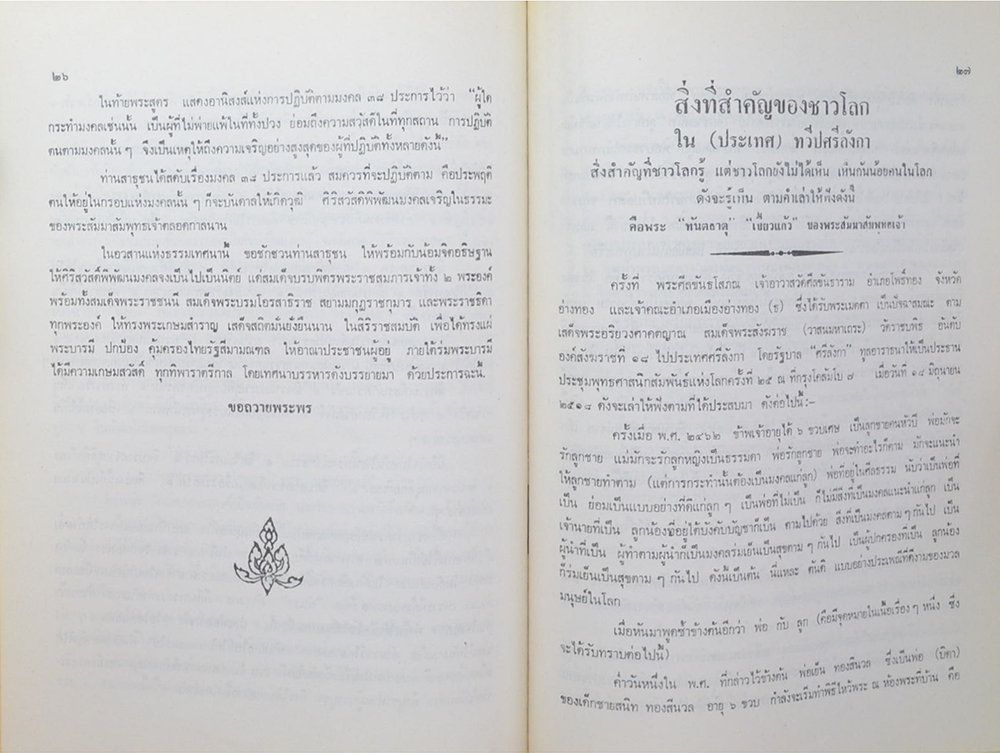 ๒๖
ในท้ายพระสูตร แสดงอานิสงส์แห่งการปฏิบัติตามมงคล ๓๘ ประการไว้ว่า “ผู้ใด
กระทำมงคลเช่นนั้น เป็นผู้ที่ไม่พ่ายแพ้ในที่ทั้งปวง ย่อมถึงความสวัสดีในที่ทุกสถาน การปฏิบัติ
ตนตามมงคลนั้น ๆ จึงเป็นเหตุให้ถึงความเจริญอย่างสูงสุดของผู้ที่ปฏิบัติทั้งหลายดังนี้”
ท่านสาธุชนได้สดับเรื่องมงคล ๓๘ ประการแล้ว สมควรที่จะปฏิบัติตาม คือประพฤติ
ตนให้อยู่ในกรอบแห่งมงคลนั้น ๆ ก็จะบันดาลให้เกิดวุฒิ ศิริสวัสดิ์พิพัฒนมงคลเจริญในธรรมะ
ของพระสัมมาสัมพุทธเจ้าตลอดกาลนาน
ในอวสานแห่งธรรมเทศนานี้ ขอชักชวนท่านสาธุชน ให้พร้อมกับน้อมจิตอธิษฐาน
ให้ศิริสวัสดิ์พิพัฒน์มงคลจงเป็นไปเป็นนิตย์ แด่สมเด็จบรมบพิตรพระราชสมภารเจ้าทั้ง ๒ พระองค์
พร้อมทั้งสมเด็จพระราชชนนี สมเด็จพระบรมโอรสาธิราช สยามมกุฎราชกุมาร และพระราชธิดา
ทุกพระองค์ ให้ทรงพระเกษมสำราญ เสด็จสถิตมั่นยั่งยืนนาน ในสิริราชสมบัติ เพื่อได้ทรงแผ่
พระบารมี ปกป้อง คุ้มครองไทยรัฐสีมามณฑล ให้อาณาประชาชนผู้อยู่ ภายใต้ร่มพระบารมี
ได้มีความเกษมสวัสดิ์ ทุกทิพาราตรีกาล โดยเทศนาบรรหารดังบรรยายมา ด้วยประการฉะนี้.
ขอถวายพระพร
๒๗
สิ่งที่สำคัญของชาวโลก
ใน (ประเทศ) ทวีปศรีลังกา
สิ่งสำคัญที่ชาวโลกรู้ แต่ชาวโลกยังไม่ได้เห็น เห็นกันน้อยคนในโลก
ดังจะรู้เห็น ตามคำเล่าให้ฟังดังนี้
คือพระ “ทันตธาตุ” “เขี้ยวแก้ว” ของพระสัมมาสัมพุทธเจ้า
ครั้งที่ พระศีลขันธ์โสภณ เจ้าอาวาสวัดศีลขันธาราม อำเภอโพธิ์ทอง จังหวัด
อ่างทอง และเจ้าคณะอำเภอเมืองอ่างทอง (ธ) ซึ่งได้รับพระเมตตา เป็นปัจฉาสมณะ ตาม
เสด็จพระอริยวงศาคตญาณ สมเด็จพระสังฆราช (วาสนมหาเถระ) วัดราชบพิธ อันดับ
องค์สังฆราชที่ ๑๘ ไปประเทศศรีลังกา โดยรัฐบาล “ศรีลังกา” ทูลอาราธนาให้เป็นประธาน
ประชุมพุทธศาสนิกสัมพันธ์แห่งโลกครั้งที่ ๒๕ ณ ที่กรุงโคลัมโบ ๗ เมื่อวันที่ ๑๘ มิถุนายน
๒๕๑๘ ดังจะเล่าให้ฟังตามที่ได้ประสบมา ดังต่อไปนี้:–
ครั้งเมื่อ พ.ศ. ๒๔๖๒ ข้าพเจ้าอายุได้ ๖ ขวบเศษ เป็นลูกชายคนหัวปี พ่อมักจะ
รักลูกชาย แม่มักจะรักลูกหญิงเป็นธรรมดา พ่อรักลูกชาย พ่อจะทำอะไรก็ตาม มักจะแนะนำ
ให้ลูกชายทำตาม (แต่การกระทำนั้นต้องเป็นมงคลแก่ลูก) พ่อที่อยู่ในศีลธรรม นับว่าเป็นพ่อที่
เป็น ย่อมเป็นแบบอย่างที่ดีแก่ลูก ๆ เป็นพ่อที่ไม่เป็น ก็ไม่มีสิ่งที่เป็นมงคลแนะนำแก่ลูก เป็น
เจ้านายที่เป็น ลูกน้องที่อยู่ใต้บังคับบัญชาก็เป็น ตามไปด้วย สิ่งที่เป็นมงคลตาม ๆ กันไป เป็น
ผู้นำที่เป็น ผู้ทำตามผู้นำก็เป็นมงคลร่มเย็นเป็นสุขตาม ๆ กันไป เป็นผู้ปกครองที่เป็น ลูกน้อง
ก็ร่มเย็นเป็นสุขตาม ๆ กันไป ดังนี้เป็นต้น นี่แหละ ตันติ แบบอย่างประเพณีที่ดีงามของมวล
มนุษย์ในโลก
เมื่อหันมาพูดซ้ำข้างต้นอีกว่า พ่อ กับ ลูก (คือมีจุดหมายในเนื้อเรื่อง ๆ หนึ่ง ซึ่ง
จะได้รับทราบต่อไปนี้)
ค่ำวันหนึ่งใน พ.ศ. ที่กล่าวไว้ข้างต้น พ่อเย็น ทองสีนวล ซึ่งเป็นพ่อ (บิดา)
ของเด็กชายสนิท ทองสีนวล อายุ ๖ ขวบ กำลังจะเริ่มทำพิธีไหว้พระ ณ ห้องพระที่บ้าน คือ